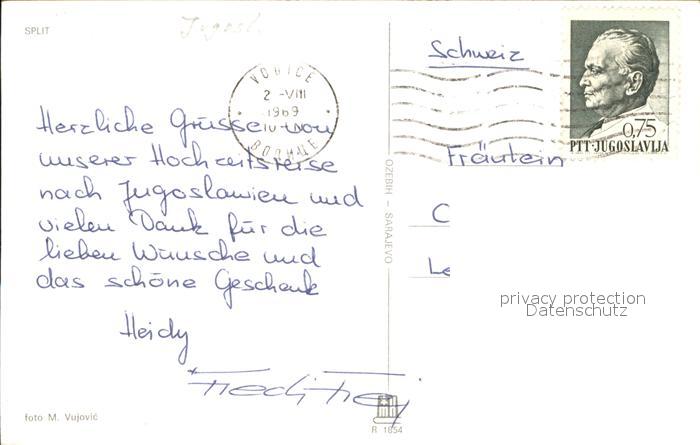 SPLIT
Jugosl.
VODICE
2 -VIII
1969
ВОДИЦЕ
Herzliche Grüsse von
unserer Hochzeitsreise
nach Jugoslawien und
vielen Dank für die
lieben Wünsche und
das schöne Geschenk
Heidy
foto M. Vujović
OZEBIH – SARAJEVO
R 1854
Schweiz
0,75
PTT·JUGOSLAVIJA
Fräulein
C
Le
privacy protection
Datenschutz